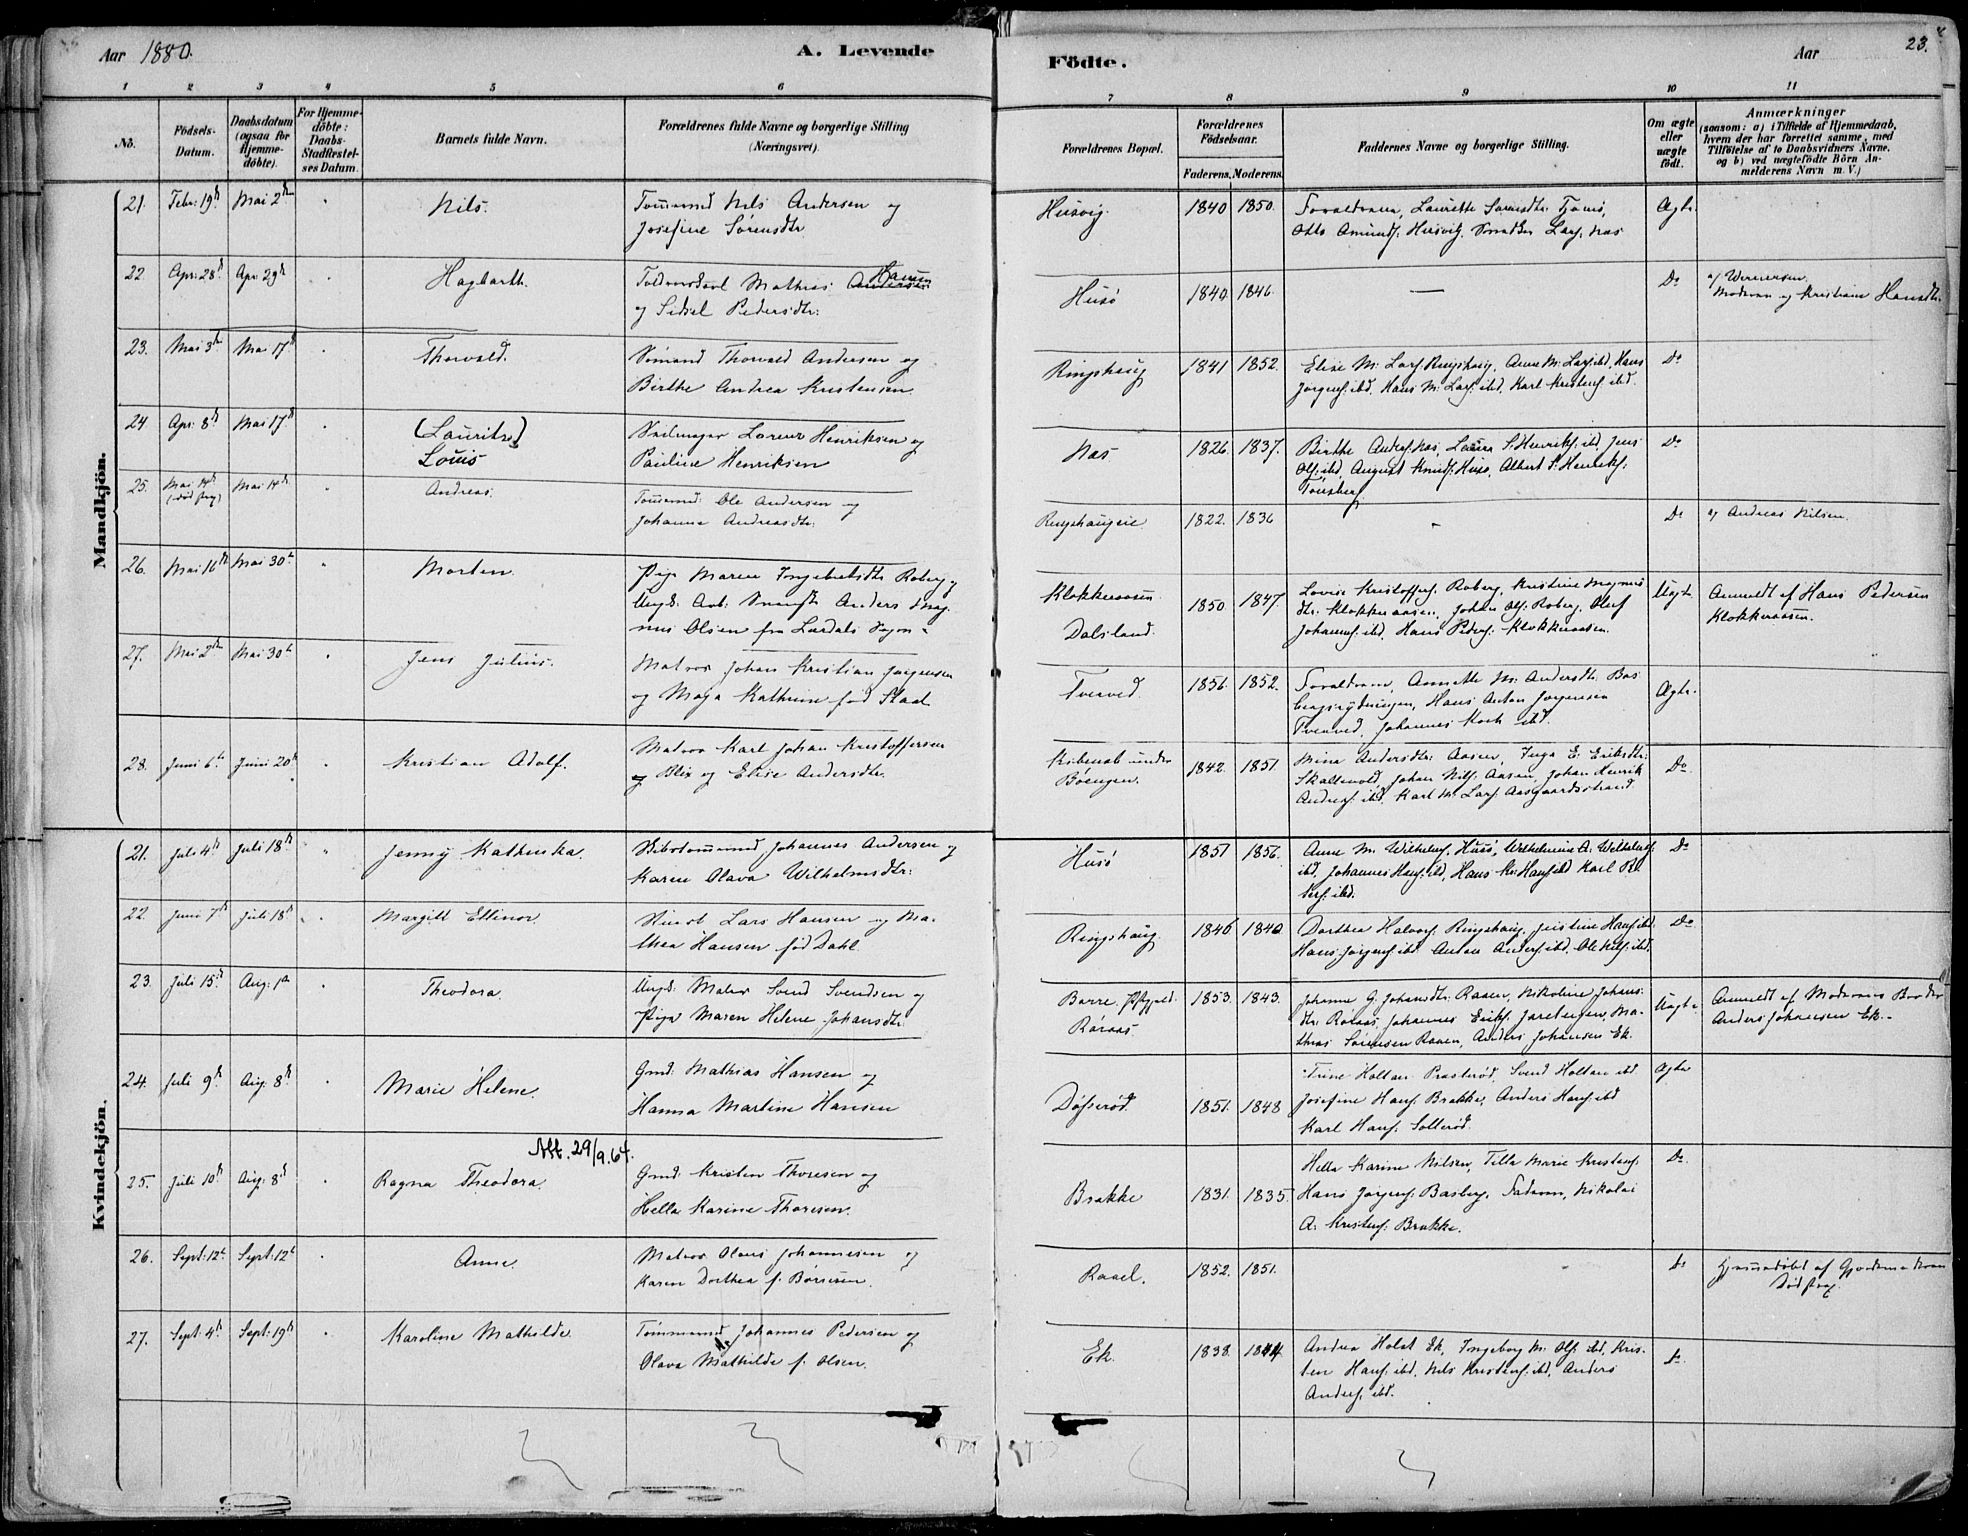 Aar 1880.
A. Levende
Födte.
Aar
23.
1 2 3 4 5 6
7 8 9 10 11
No.
Födsels-Datum.
Daabsdatum (ogsaa for Hjemme-döbte).
For Hjemme-döbte: Daabs-Stadfæstel-ses Datum.
Barnets fulde Navn.
Forældrenes fulde Navne og borgerlige Stilling (Næringsvei).
Forældrenes Bopæl.
Forældrenes Födselsaar.
Faderens. Moderens.
Faddernes Navne og borgerlige Stilling.
Om ægte eller uægte födt.
Anmærkninger
(saasom: a) i Tilfælde af Hjemmedaab, hvem der har forrettet samme, med Tilföielse af to Daabsvidners Navne, og b) ved uægtefödte Börn An-melderens Navn m. V.)
Mandkjön.
21. Febr: 19de Mai 2den " Nils. Tømmermd Nils Andersen og
Josefine Sørensdtr.
Husvig. 1840 1850. Forældrene, Laurette Sørensdtr. Tjømø,
Otto Amunds: Husvig, Lars: Næs
Ægte.
22. Apr: 28d Apr: 29de " Hagbarth. Mathias Andersen Hansen
og Sidsel Pedersdtr:
Husø 1840 1846. — Do
a/ Moderen og Kristiane Hansdtr.
23. Mai 3de Mai 17d " Thorvald. Sömand Thorvald Andersen og
Birthe Andrea Kristensen.
Ringshaug 1841 1852. Elise M: Lars: Ringshaug, Anne M: Lars: ibd, Hans
Jørgens: ibd, Hans M: Lars: ibd, Karl Kristens: ibd. Do
24 Apr: 8d Mai 17d " (Lauritz)
Louis
Lorenz Henriksen og
Pauline Henriksen
Næs 1826. 1837. Birthe Anders: Næs, Laura S: Henriks: ibd, Jens
Ols: ibd, August Knuds: Husø, Albert S: Henriks:
Tønsberg Do
25. Mai 14de (død strax) Mai 14de " Andreas. Tømmermd: Ole Andersen og
Johanne Andreasdtr:
Ringshaugeie 1822. 1836 " Do a/ Andreas Nilsen.
26. Mai 16de Mai 30te " Morten. Pige Maren Ingebretsdtr Roberg og
Ungk: Arb: Anders Mag-
nus Olsen fra Lardals Sogn.
Klokkeraasen
Dalsland. 1850. 1847. Lovise Kristoffers: Roberg, Kristine Magnus
dtr. Klokkeraasen, Johan Ols: Roberg, Oluf
Johanns: ibd, Hans Peders: Klokkeraasen.
Uægte Anmeldt af Hans Pedersen
Klokkeraasen.
27. Mai 2den Mai 30te " Jens Julius. Matros Johan Kristian Jørgensen
og Maja Kathrine fød
Tverved. 1856. 1852. Forældrene, Annette M: Andersdtr: Bas
bergrydningen, Hans Anton Jørgensen
Tverved, Johannes Koch ibd. Ægte.
28. Juni 6te Juni 20de " Kristian Adolf. Matros Karl Johan Kristoffersen
og Blix og Elise Andersdtr.
under
Bøengen. 1842. 1851. Mina Andersdtr: Aasen, Inga E. Eriksdtr:
Skallevold, Johan Nils: Aasen, Johan Henrik
Anders: ibd, Karl M: Lars: Aasgaardsstrand Do
Kvindekjön.
21. Juli 4de Juli 18de " Jenny Kathinka. Skibstømmermd Johannes Andersen og
Karen Olava Wilhelmsdtr:
Husø 1851 1856. Anne M. Wilhelms: Husø, Wilhelmine A. Wilhelms:
ibd, Johannes Hans: ibd, Hans Kr: Hans: ibd, Karl
ibd. Do
22. Juni 7de Juli 18de " Margitt Ellinor. Lars Hansen og Ma-
thea Hansen fød Dahl
Ringshaug 1846 1840. Dorthea Halvors: Ringshaug, Justine Hans: ibd
Hans Jørgens: ibd Anton Anders: ibd, Ole Nils: ibd. Do
23. Juli 15d Aug: 1ste " Theodora. Ungk: Matros Svend Svendsen og
Pige Maren Helene Johansdtr:
Borre Præstgjeld
Røraas 1853. 1843. Johanne G: Johansdtr: Raaen, Nikoline Johans
dtr: Røraas, Johannes Eriks: Jareteigen, Ma-
thias Sørensen Raaen, Anders Johansen Ek.
Uægte Anmeldt af Moderens Broder
Anders Johansen Ek.
24. Juli 9de Aug: 8d " Marie Helene. Gmd: Mathias Hansen og
Hanna Martine Hansen
1851. 1848 Trine Holtan Presterød, Svend Holtan ibd
Josefine Hans: Brakke, Anders Hans: ibd
Karl Hans: Solterød. Ægte
Att. 29/9.64.
25. Juli 10de Aug: 8d " Ragna Theodora. Gmd: Kristen Thoresen og
Hella Karine Thoresen.
Brakke 1831. 1835 Hella Karine Nilsen, Tilla Marie Kristens:
Hans Jørgens: Basberg, Faderen, Nikolai
A: Kristens: Brakke. Do.
26. Sept: 12te Sept: 12te " Anne. Matros Olaus Johannesen og
Karen Dorthea f. Børresen.
Raael. 1852. 1851. " Do Hjemmedøbt af Gjordemoderen
Død strax.
27. Sept: 4de Sept: 19de " Karoline Mathilde. Tømmermd Johannes Pedersen og
Olava Mathilde f. Olsen.
Ek. 1838. 1844. Andrea Holst Ek, Ingeborg M: Ols: ibd, Kris-
ten Hans: ibd, Nils Kristens: ibd, Anders
Anders: ibd. Do.